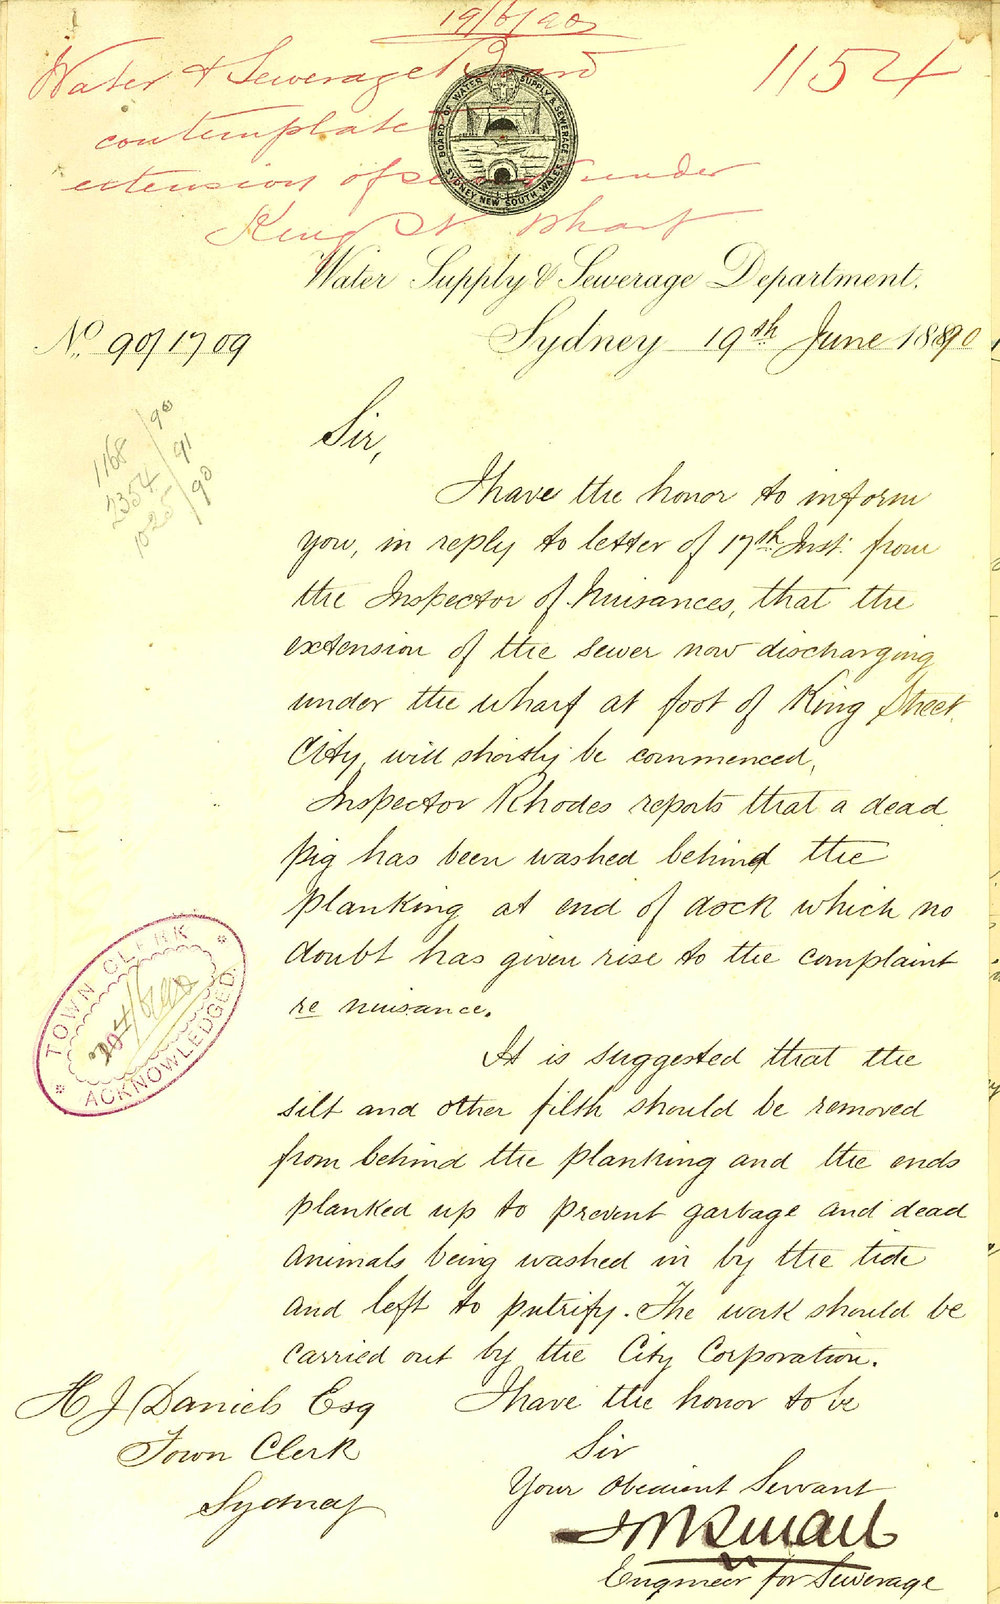 19/6/90
1154
Water & Sewerage Board
contemplated
extension of sewer under
King St Wharf
BOARD OF WATER SUPPLY & SEWERAGE
SYDNEY NEW SOUTH WALES
Water Supply & Sewerage Department.
No. 90/1709
Sydney 19th June 1890
1168/90
2354/91
1025/90
Sir,
I have the honor to inform
you, in reply to letter of 17th Inst. from
the Inspector of Nuisances, that the
extension of the sewer now discharging
under the wharf at foot of King Street
City, will shortly be commenced,
Inspector Rhodes reports that a dead
pig has been washed behind the
planking at end of dock which no
doubt has given rise to the complaint
re nuisance.
TOWN CLERK
ACKNOWLEDGED
It is suggested that the
silt and other filth should be removed
from behind the planking and the ends
planked up to prevent garbage and dead
animals being washed in by the tide
and left to putrify. The work should be
carried out by the City Corporation.
I have the honor to be
Sir
Your Obedient Servant
J M Smail
Engineer for Sewerage
H J Daniels Esq
Town Clerk
Sydney